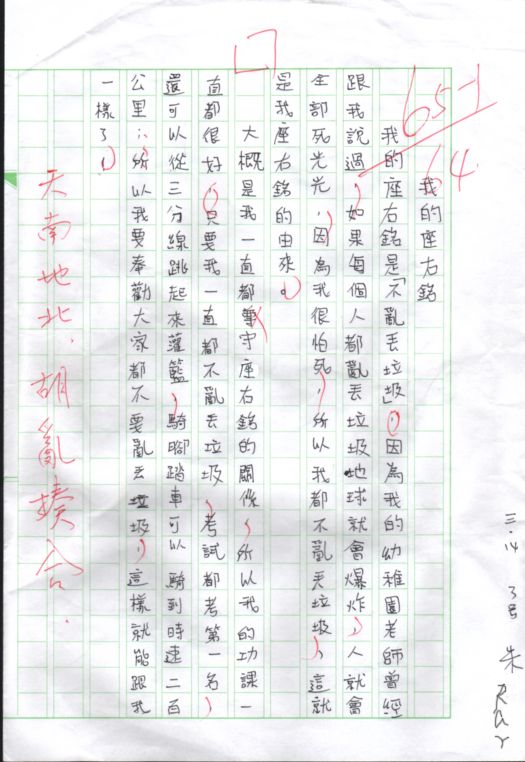 三.14
3号
朱
65-1
64.
我的座右銘
我的座右銘是「不亂丟垃圾」,因為我的幼稚園老師曾經
跟我說過,如果每個人都亂丟垃圾地球就會爆炸,人就會
全部死光光,因為我很怕死,所以我都不亂丟垃圾,這就
是我座右銘的由來。
大概是我一直都遵守座右銘的關係,所以我的功課一
直都很好,只要我一直都不亂丟垃圾,考試都考第一名,
還可以從三分線跳起來灌籃,騎腳踏車可以騎到時速二百
公里,所以我要奉勸大家都不要亂丟垃圾,這樣就能跟我
一樣了!
天南地北,胡亂揍合.